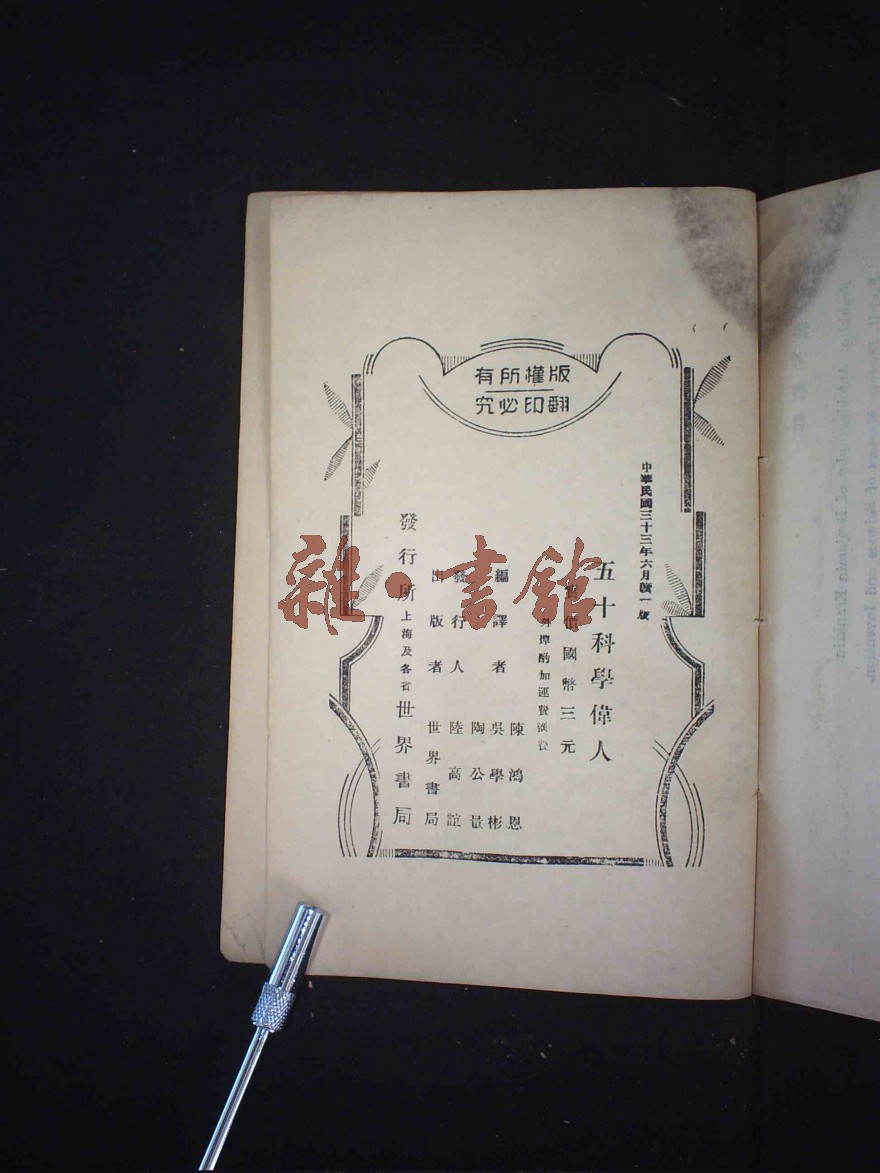 版權所有
翻印必究
中華民國三十三年六月贛一版
五十科學偉人
價國幣三元
埠酌加運費匯費
編譯者 陳鴻恩 吳學彬 陶公量
發行人 陸高誼
出版者 世界書局
發行所 上海及各省 世界書局
雜·書館